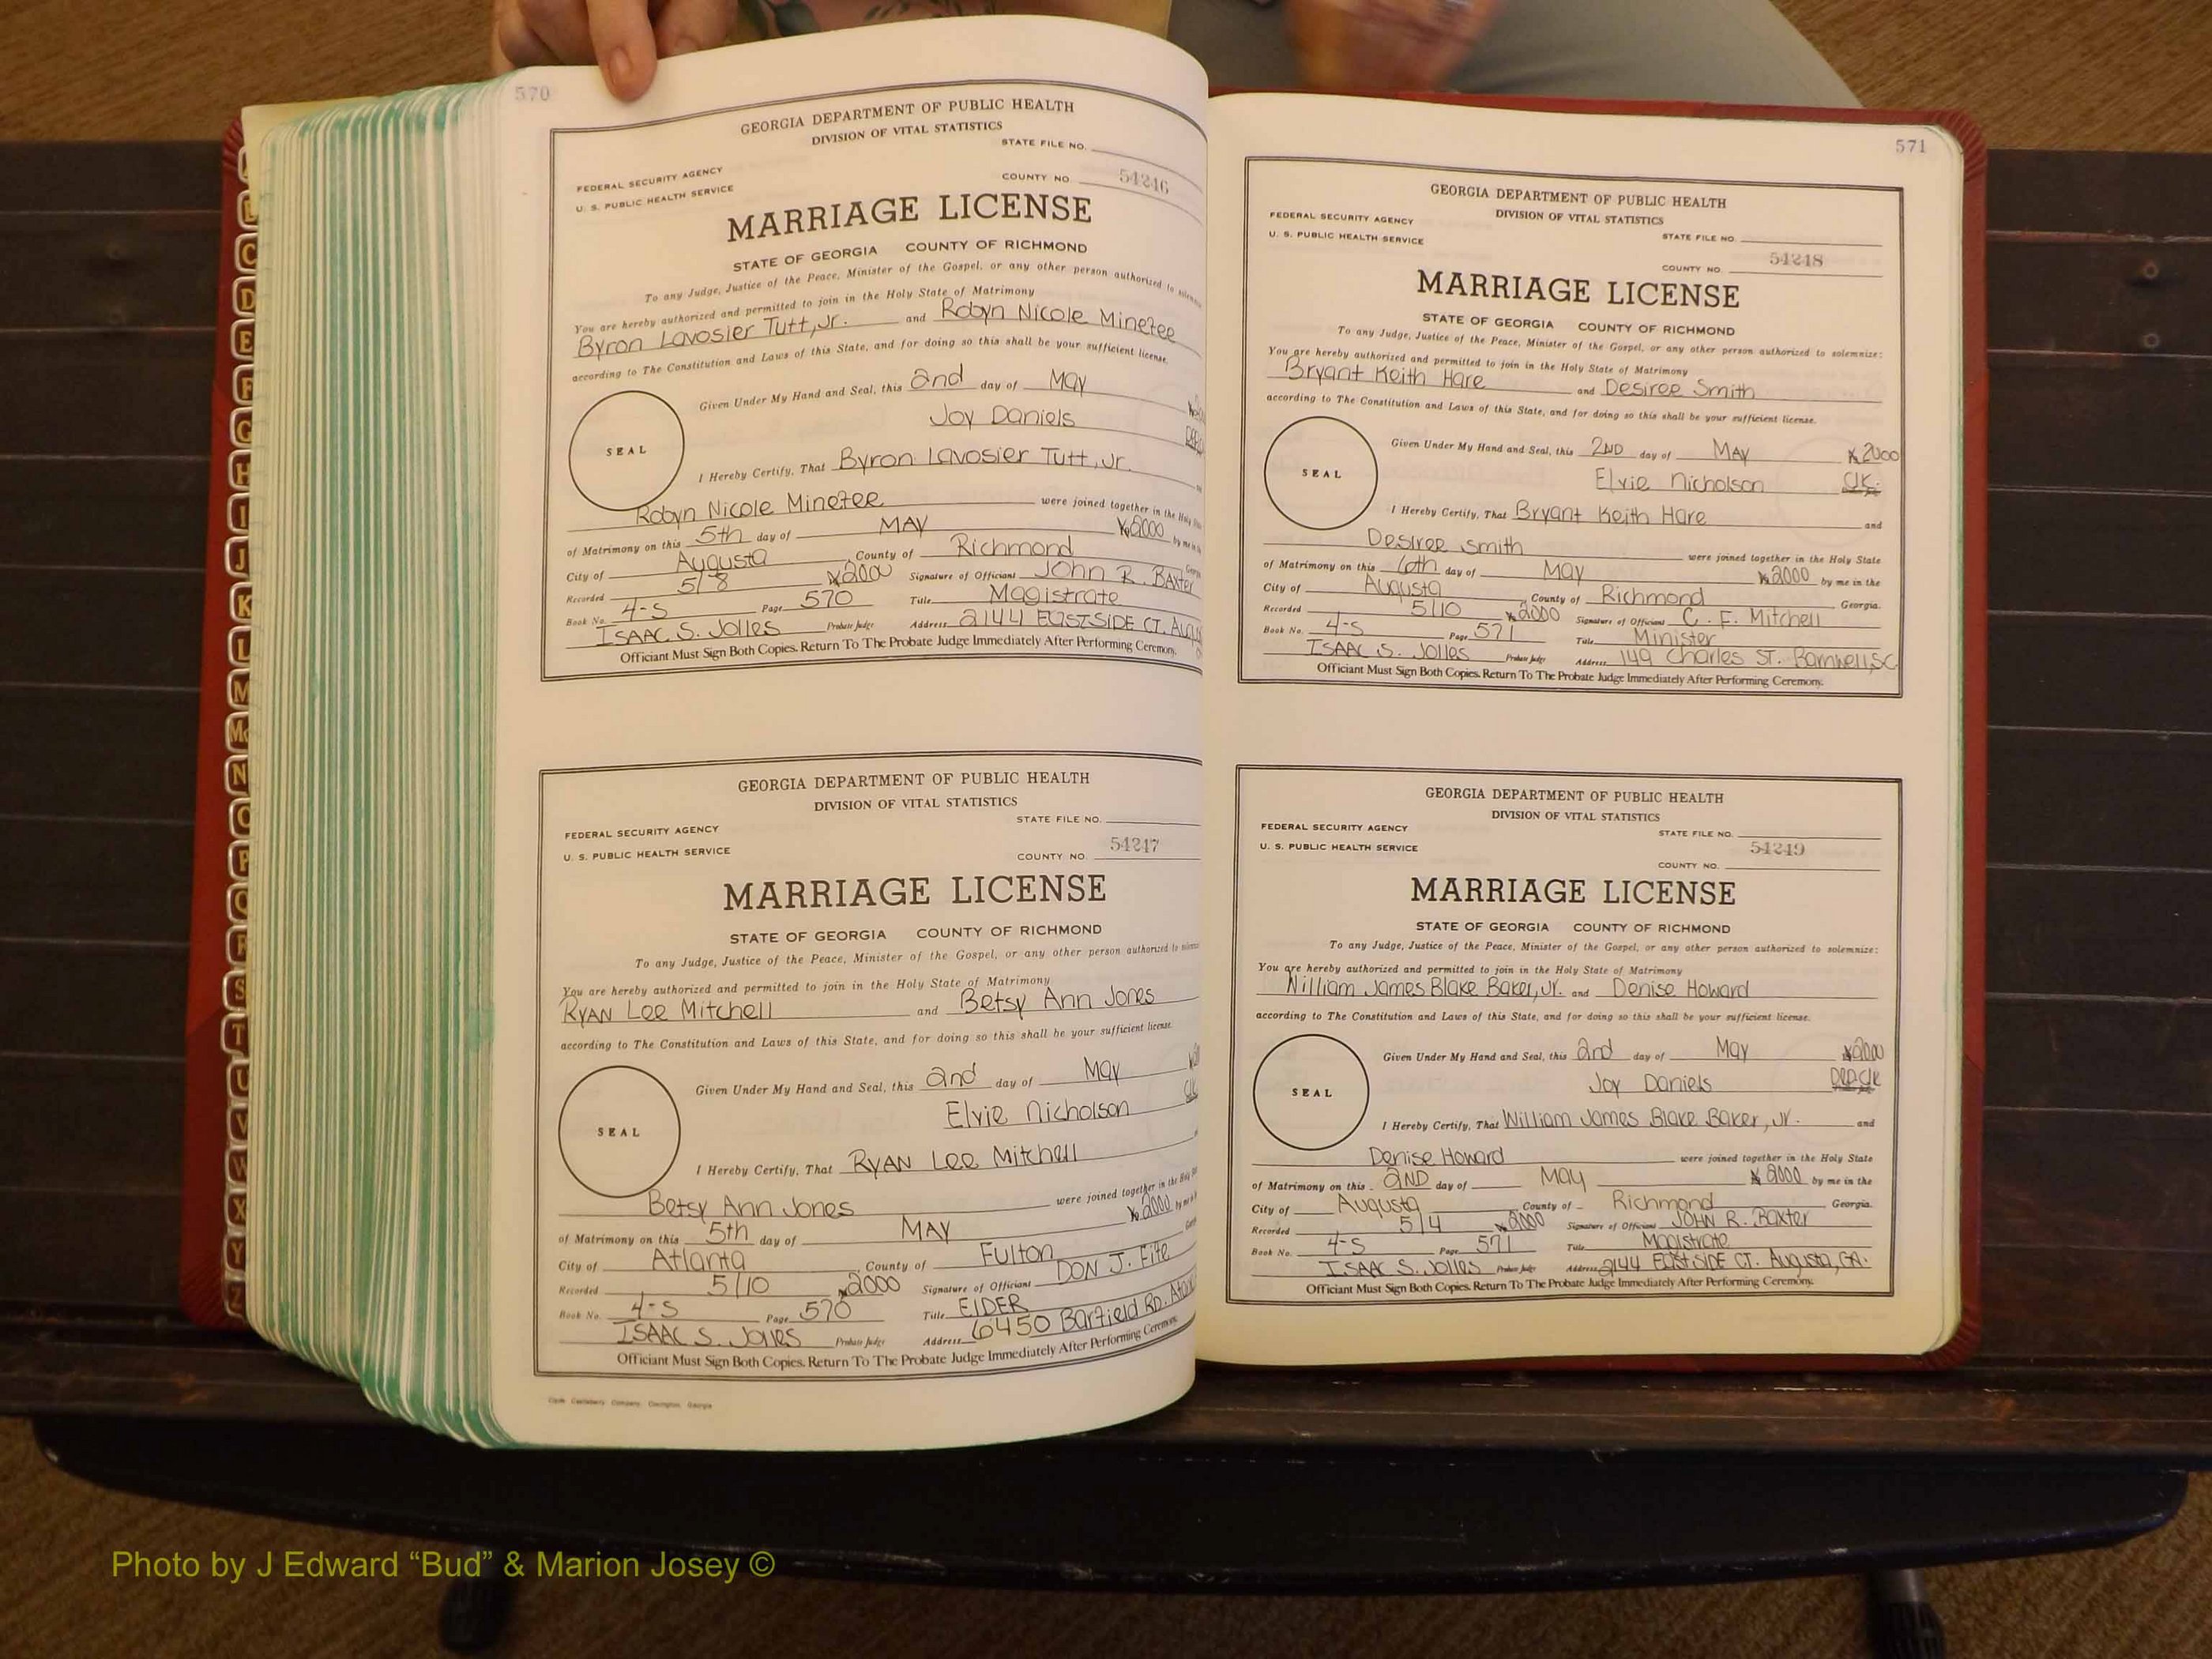 570
GEORGIA DEPARTMENT OF PUBLIC HEALTH
DIVISION OF VITAL STATISTICS
STATE FILE NO.
FEDERAL SECURITY AGENCY
U. S. PUBLIC HEALTH SERVICE
COUNTY NO. 54246
MARRIAGE LICENSE
STATE OF GEORGIA COUNTY OF RICHMOND
To any Judge, Justice of the Peace, Minister of the Gospel, or any other person authorized to
You are hereby authorized and permitted to join in the Holy State of Matrimony
Byron Lavosier Tutt, Jr. and Robyn Nicole Minetee
according to The Constitution and Laws of this State, and for doing so this shall be your sufficient license.
SEAL
Given Under My Hand and Seal, this 2nd day of May
Joy Daniels
I Hereby Certify, That Byron Lavosier Tutt, Jr.
Robyn Nicole Minetee were joined together in the Holy
of Matrimony on this 5th day of MAY 2000 by me in
City of Augusta, County of Richmond
Recorded 5/8 2000 Signature of Officiant John R. Baxter
Book No. 4-S Page 570 Title Magistrate
ISAAC S. Jolles Probate Judge Address 2144 EASTSIDE CT.
Officiant Must Sign Both Copies. Return To The Probate Judge Immediately After Performing Ceremony.
GEORGIA DEPARTMENT OF PUBLIC HEALTH
DIVISION OF VITAL STATISTICS
STATE FILE NO.
FEDERAL SECURITY AGENCY
U. S. PUBLIC HEALTH SERVICE
COUNTY NO. 54247
MARRIAGE LICENSE
STATE OF GEORGIA COUNTY OF RICHMOND
To any Judge, Justice of the Peace, Minister of the Gospel, or any other person authorized to
You are hereby authorized and permitted to join in the Holy State of Matrimony
RYAN Lee Mitchell and Betsy Ann Jones
according to The Constitution and Laws of this State, and for doing so this shall be your sufficient license.
SEAL
Given Under My Hand and Seal, this 2nd day of May
Elvie Nicholson
I Hereby Certify, That RYAN Lee Mitchell
Betsy Ann Jones were joined together in the Holy
of Matrimony on this 5th day of MAY 2000 by me
City of Atlanta, County of Fulton
Recorded 5/10 2000 Signature of Officiant DON J. Fife
Book No. 4-S Page 570 Title ElDER
ISAAC S. Jolles Probate Judge Address 6450 Barfield RD.
Officiant Must Sign Both Copies. Return To The Probate Judge Immediately After Performing Ceremony.
571
GEORGIA DEPARTMENT OF PUBLIC HEALTH
DIVISION OF VITAL STATISTICS
FEDERAL SECURITY AGENCY
U. S. PUBLIC HEALTH SERVICE
STATE FILE NO.
COUNTY NO. 54248
MARRIAGE LICENSE
STATE OF GEORGIA COUNTY OF RICHMOND
To any Judge, Justice of the Peace, Minister of the Gospel, or any other person authorized to solemnize:
You are hereby authorized and permitted to join in the Holy State of Matrimony
Bryant Keith Hare and Desiree Smith
according to The Constitution and Laws of this State, and for doing so this shall be your sufficient license.
SEAL
Given Under My Hand and Seal, this 2ND day of MAY 2000
Elvie Nicholson Clk.
I Hereby Certify, That Bryant Keith Hare and
Desiree Smith were joined together in the Holy State
of Matrimony on this 6th day of May 2000 by me in the
City of Augusta, County of Richmond Georgia.
Recorded 5/10 2000 Signature of Officiant C. F. Mitchell
Book No. 4-S Page 571 Title Minister
ISAAC S. Jolles Probate Judge Address 149 Charles ST. Barnwell, SC
Officiant Must Sign Both Copies. Return To The Probate Judge Immediately After Performing Ceremony.
GEORGIA DEPARTMENT OF PUBLIC HEALTH
DIVISION OF VITAL STATISTICS
FEDERAL SECURITY AGENCY
U. S. PUBLIC HEALTH SERVICE
STATE FILE NO.
COUNTY NO. 54249
MARRIAGE LICENSE
STATE OF GEORGIA COUNTY OF RICHMOND
To any Judge, Justice of the Peace, Minister of the Gospel, or any other person authorized to solemnize:
You are hereby authorized and permitted to join in the Holy State of Matrimony
William James Blake Baker, Jr. and Denise Howard
according to The Constitution and Laws of this State, and for doing so this shall be your sufficient license.
SEAL
Given Under My Hand and Seal, this 2nd day of May 2000
Joy Daniels Dep. Clk
I Hereby Certify, That William James Blake Baker, Jr. and
Denise Howard were joined together in the Holy State
of Matrimony on this 2ND day of May 2000 by me in the
City of Augusta, County of Richmond Georgia.
Recorded 5/4 2000 Signature of Officiant JOHN R. Baxter
Book No. 4-S Page 571 Title Magistrate
ISAAC S. Jolles Probate Judge Address 2144 EASTSIDE CT. Augusta, GA.
Officiant Must Sign Both Copies. Return To The Probate Judge Immediately After Performing Ceremony.
C
D
E
F
G
H
I
J
K
L
M
Mc
N
O
P
Q
R
S
T
U
V
W
X
Y
Z
Photo by J Edward “Bud” & Marion Josey ©